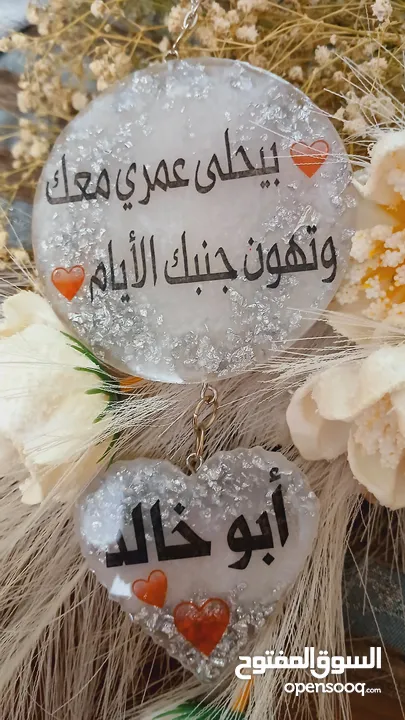 بيحلى عمري معك
وتهون جنبك الأيام
أبو خالد
السوق المفتوح
opensooq.com